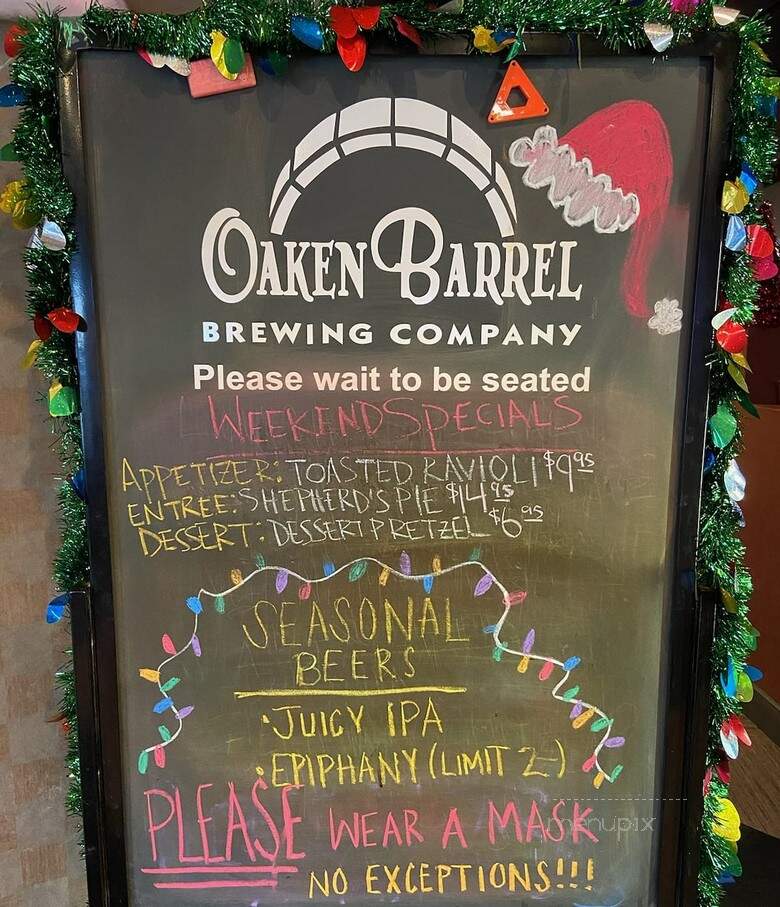 OAKEN BARREL
BREWING COMPANY
Please wait to be seated
WEEKEND SPECIALS
APPETIZER: TOASTED RAVIOLI $9.95
ENTREE: SHEPHERD'S PIE $14.95
DESSERT: DESSERT PRETZEL $6.95
SEASONAL
BEERS
• JUICY IPA
• EPIPHANY (LIMIT 2)
PLEASE WEAR A MASK
NO EXCEPTIONS!!!
menupix